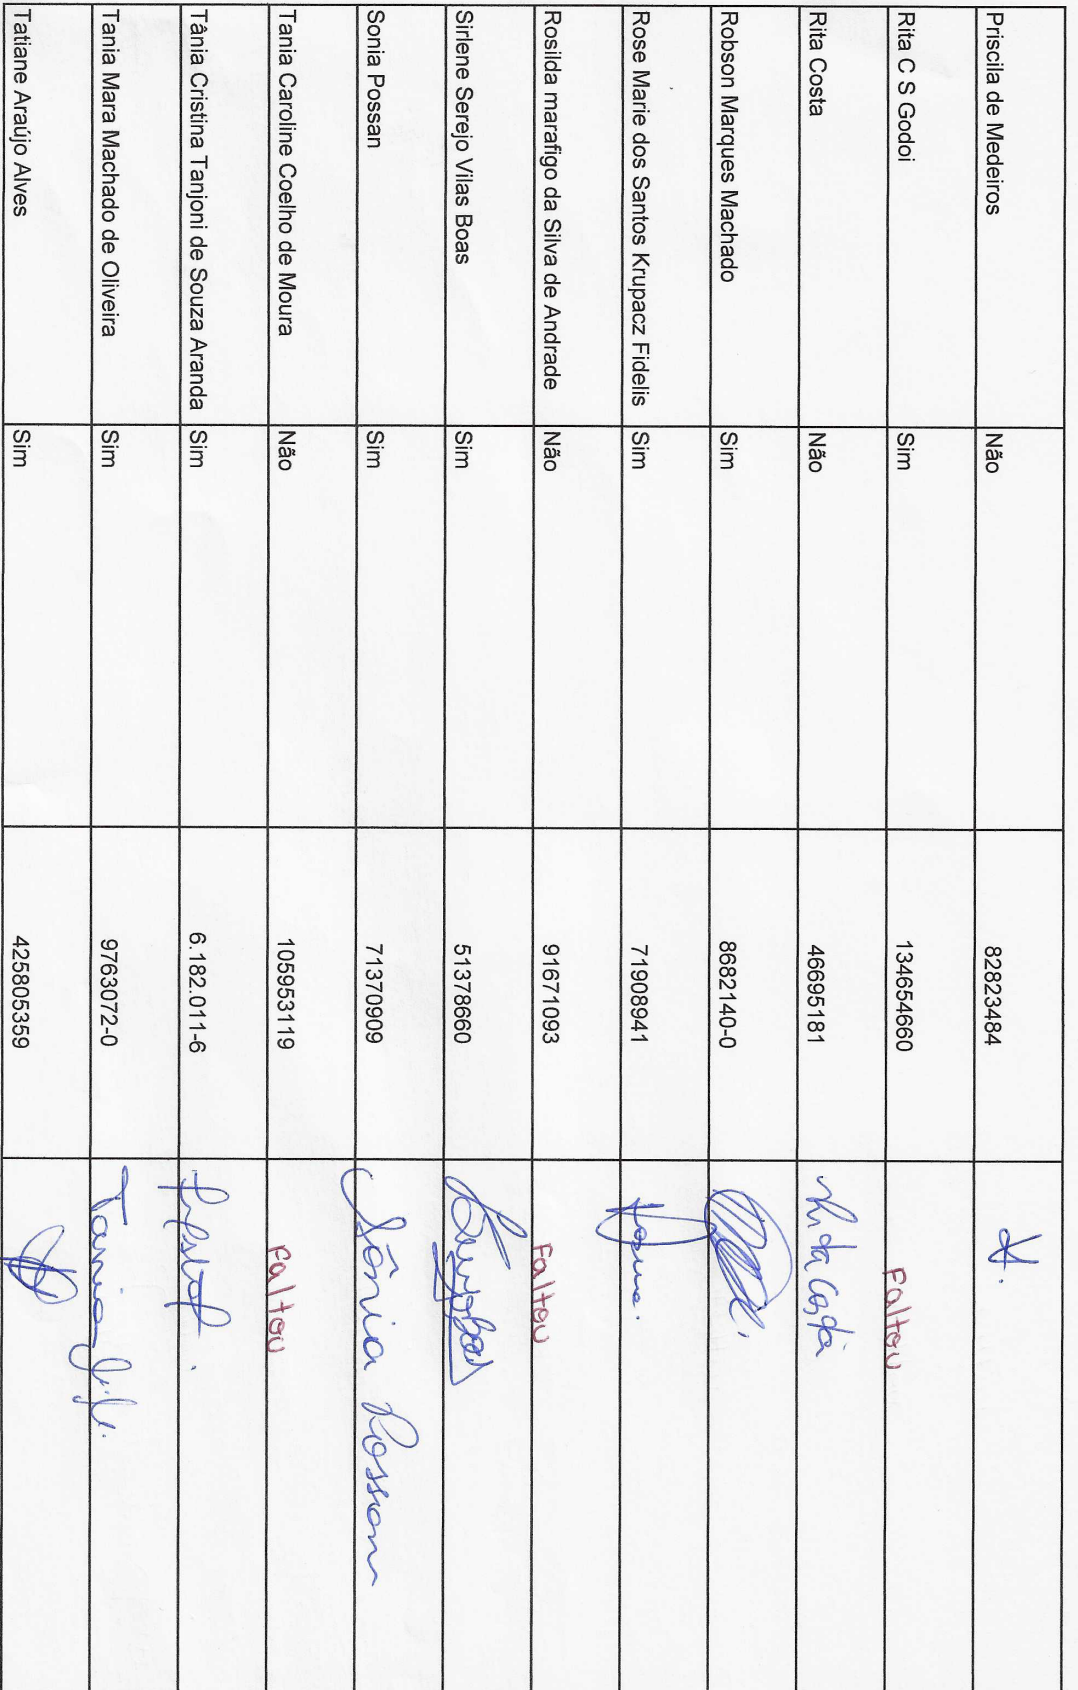 Priscila de Medeiros Não 82823484
Rita C S Godoi Sim 134654660 Faltou
Rita Costa Não 46695181 Rita Costa
Robson Marques Machado Sim 8682140-0
Rose Marie dos Santos Krupacz Fidelis Sim 71908941
Rosilda marafigo da Silva de Andrade Não 91671093 Faltou
Sirlene Serejo Vilas Boas Sim 51378660
Sonia Possan Sim 71370909 Sônia Possan
Tania Caroline Coelho de Moura Não 105953119 Faltou
Tânia Cristina Tanjoni de Souza Aranda Sim 6.182.011-6
Tania Mara Machado de Oliveira Sim 9763072-0 Tania
Tatiane Araújo Alves Sim 425805359